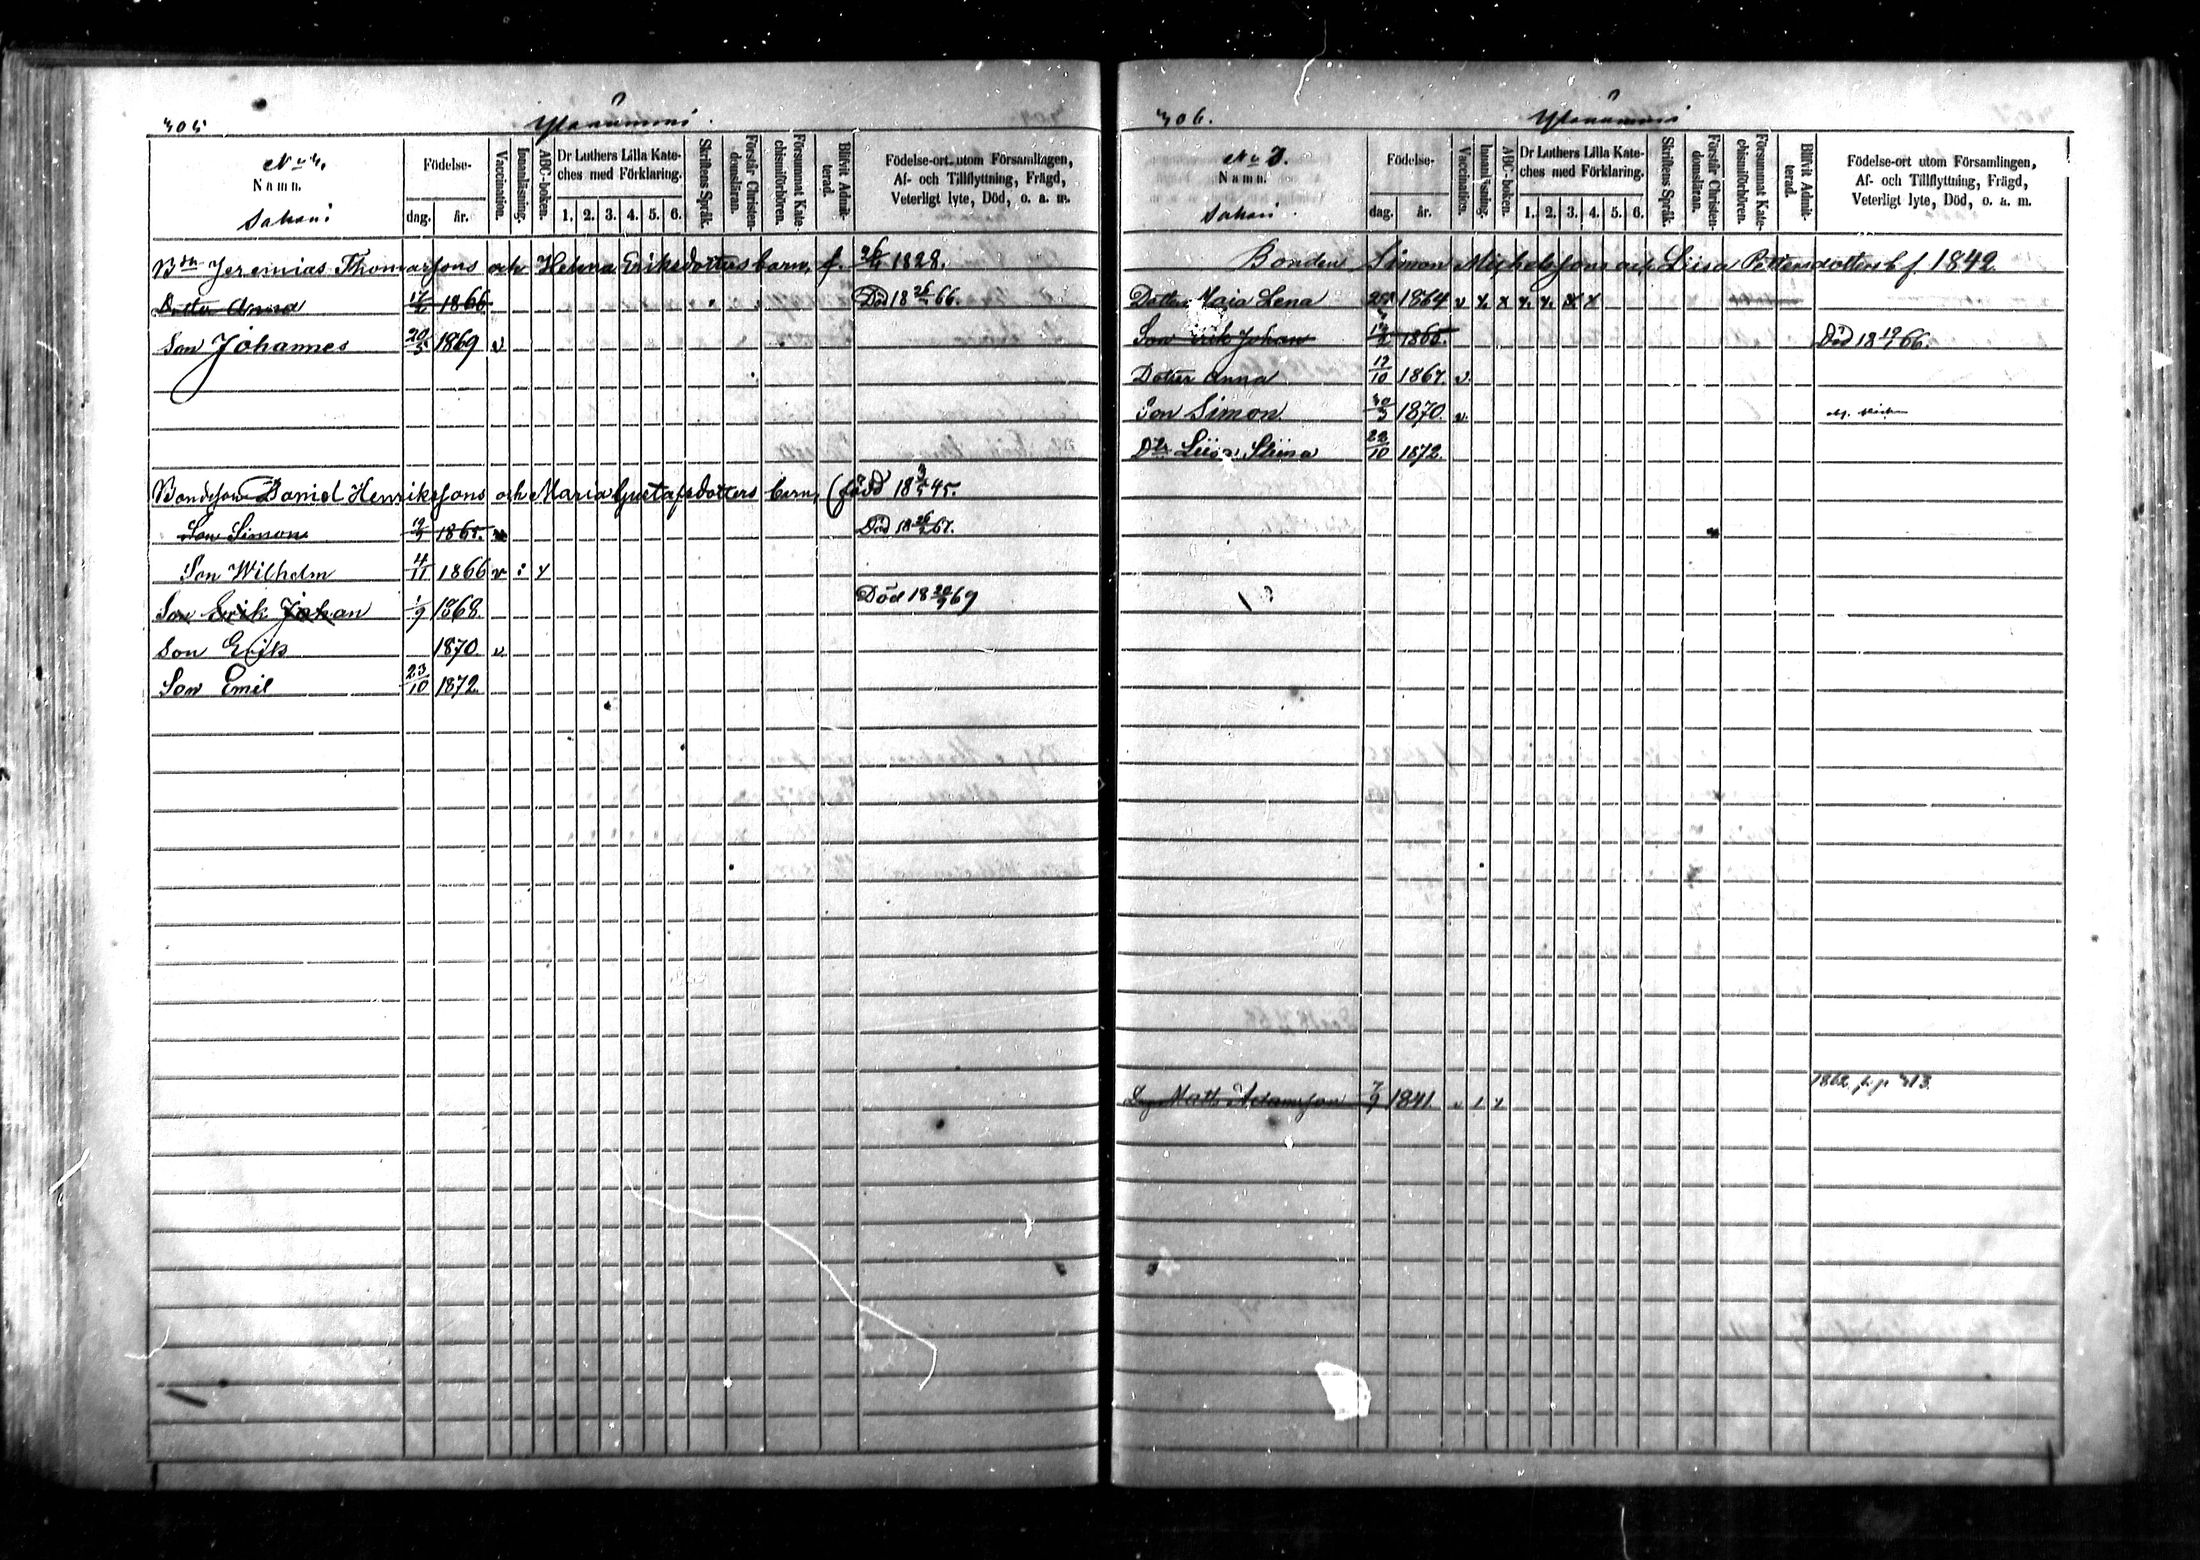 305
Namn.
Sahari
Födelse-
dag.
år.
Vaccination.
Innanläsning.
ABC-boken.
Dr Luthers Lilla Kate-
ches med Förklaring.
1. 2. 3. 4. 5. 6.
Skriftens Språk.
Förstår Christen-
domsläran.
Försummat Kate-
chismiförhören.
Blifvit Admit-
terad.
Födelse-ort utom Församlingen,
Af- och Tillflyttning, Frägd,
Veterligt lyte, Död, o. a. m.
Bdn Jeremias Thomassons och Helena Eriksdotters barn, f. 1828.
Dotter Anna 1866 Död 18 26/ 66.
Son Johannes 20/5 1869 v
Bondeson Daniel Henrikssons och Maria Gustafsdotters barn, (född 18 45.
Son Simon 1865. Död 18 26/2 67.
Son Wilhelm 4/11 1866 v
Son Erik Johan 1/9 1868. Död 18 69
Son Erik 1870 v
Son Emil 23/10 1872.
306.
No 3.
Namn.
Sahari
Födelse-
dag.
år.
Vaccination.
Innanläsning.
ABC-boken.
Dr Luthers Lilla Kate-
ches med Förklaring.
1. 2. 3. 4. 5. 6.
Skriftens Språk.
Förstår Christen-
domsläran.
Försummat Kate-
chismiförhören.
Blifvit Admit-
terad.
Födelse-ort utom Församlingen,
Af- och Tillflyttning, Frägd,
Veterligt lyte, Död, o. a. m.
Bonden Simon Michelssons och Liisa Pettersdotters b f. 1842
Dotter Maia Lena 1864 v
Son Erik Johan 1866. Död 18 66.
Dotter Anna 12/10 1867. v
Son Simon 30/3 1870 v
Dtr Liisa Stiina 22/10 1872.
Matts Adamsson 7/9 1841.
1862 p. 313.